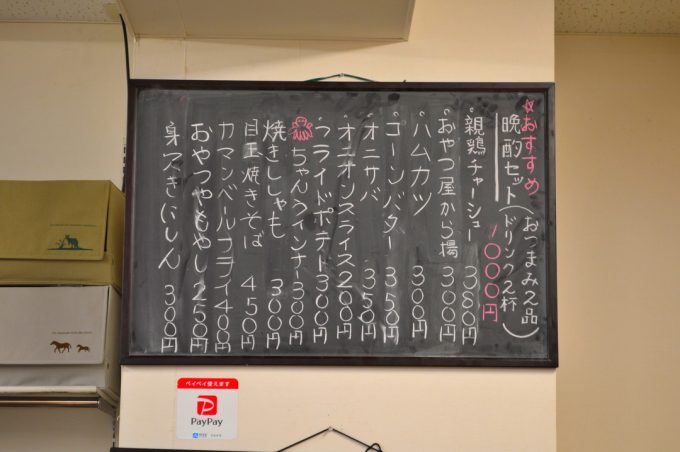 ☆おすすめ
晩酌セット(おつまみ2品
ドリンク2杯)
1000円
°親鶏チャーシュー 380円
°おやつ屋から揚 300円
°ハムカツ 300円
°コーンバター 350円
°オニサバ 350円
°オニオンスライス 200円
フライドポテト 300円
ちゃんウィンナー 300円
焼きししゃも 300円
目玉焼きそば 450円
カマンベールフライ 400円
おやつやもやし 250円
身欠きにしん 300円
ペイペイ使えます
PayPay